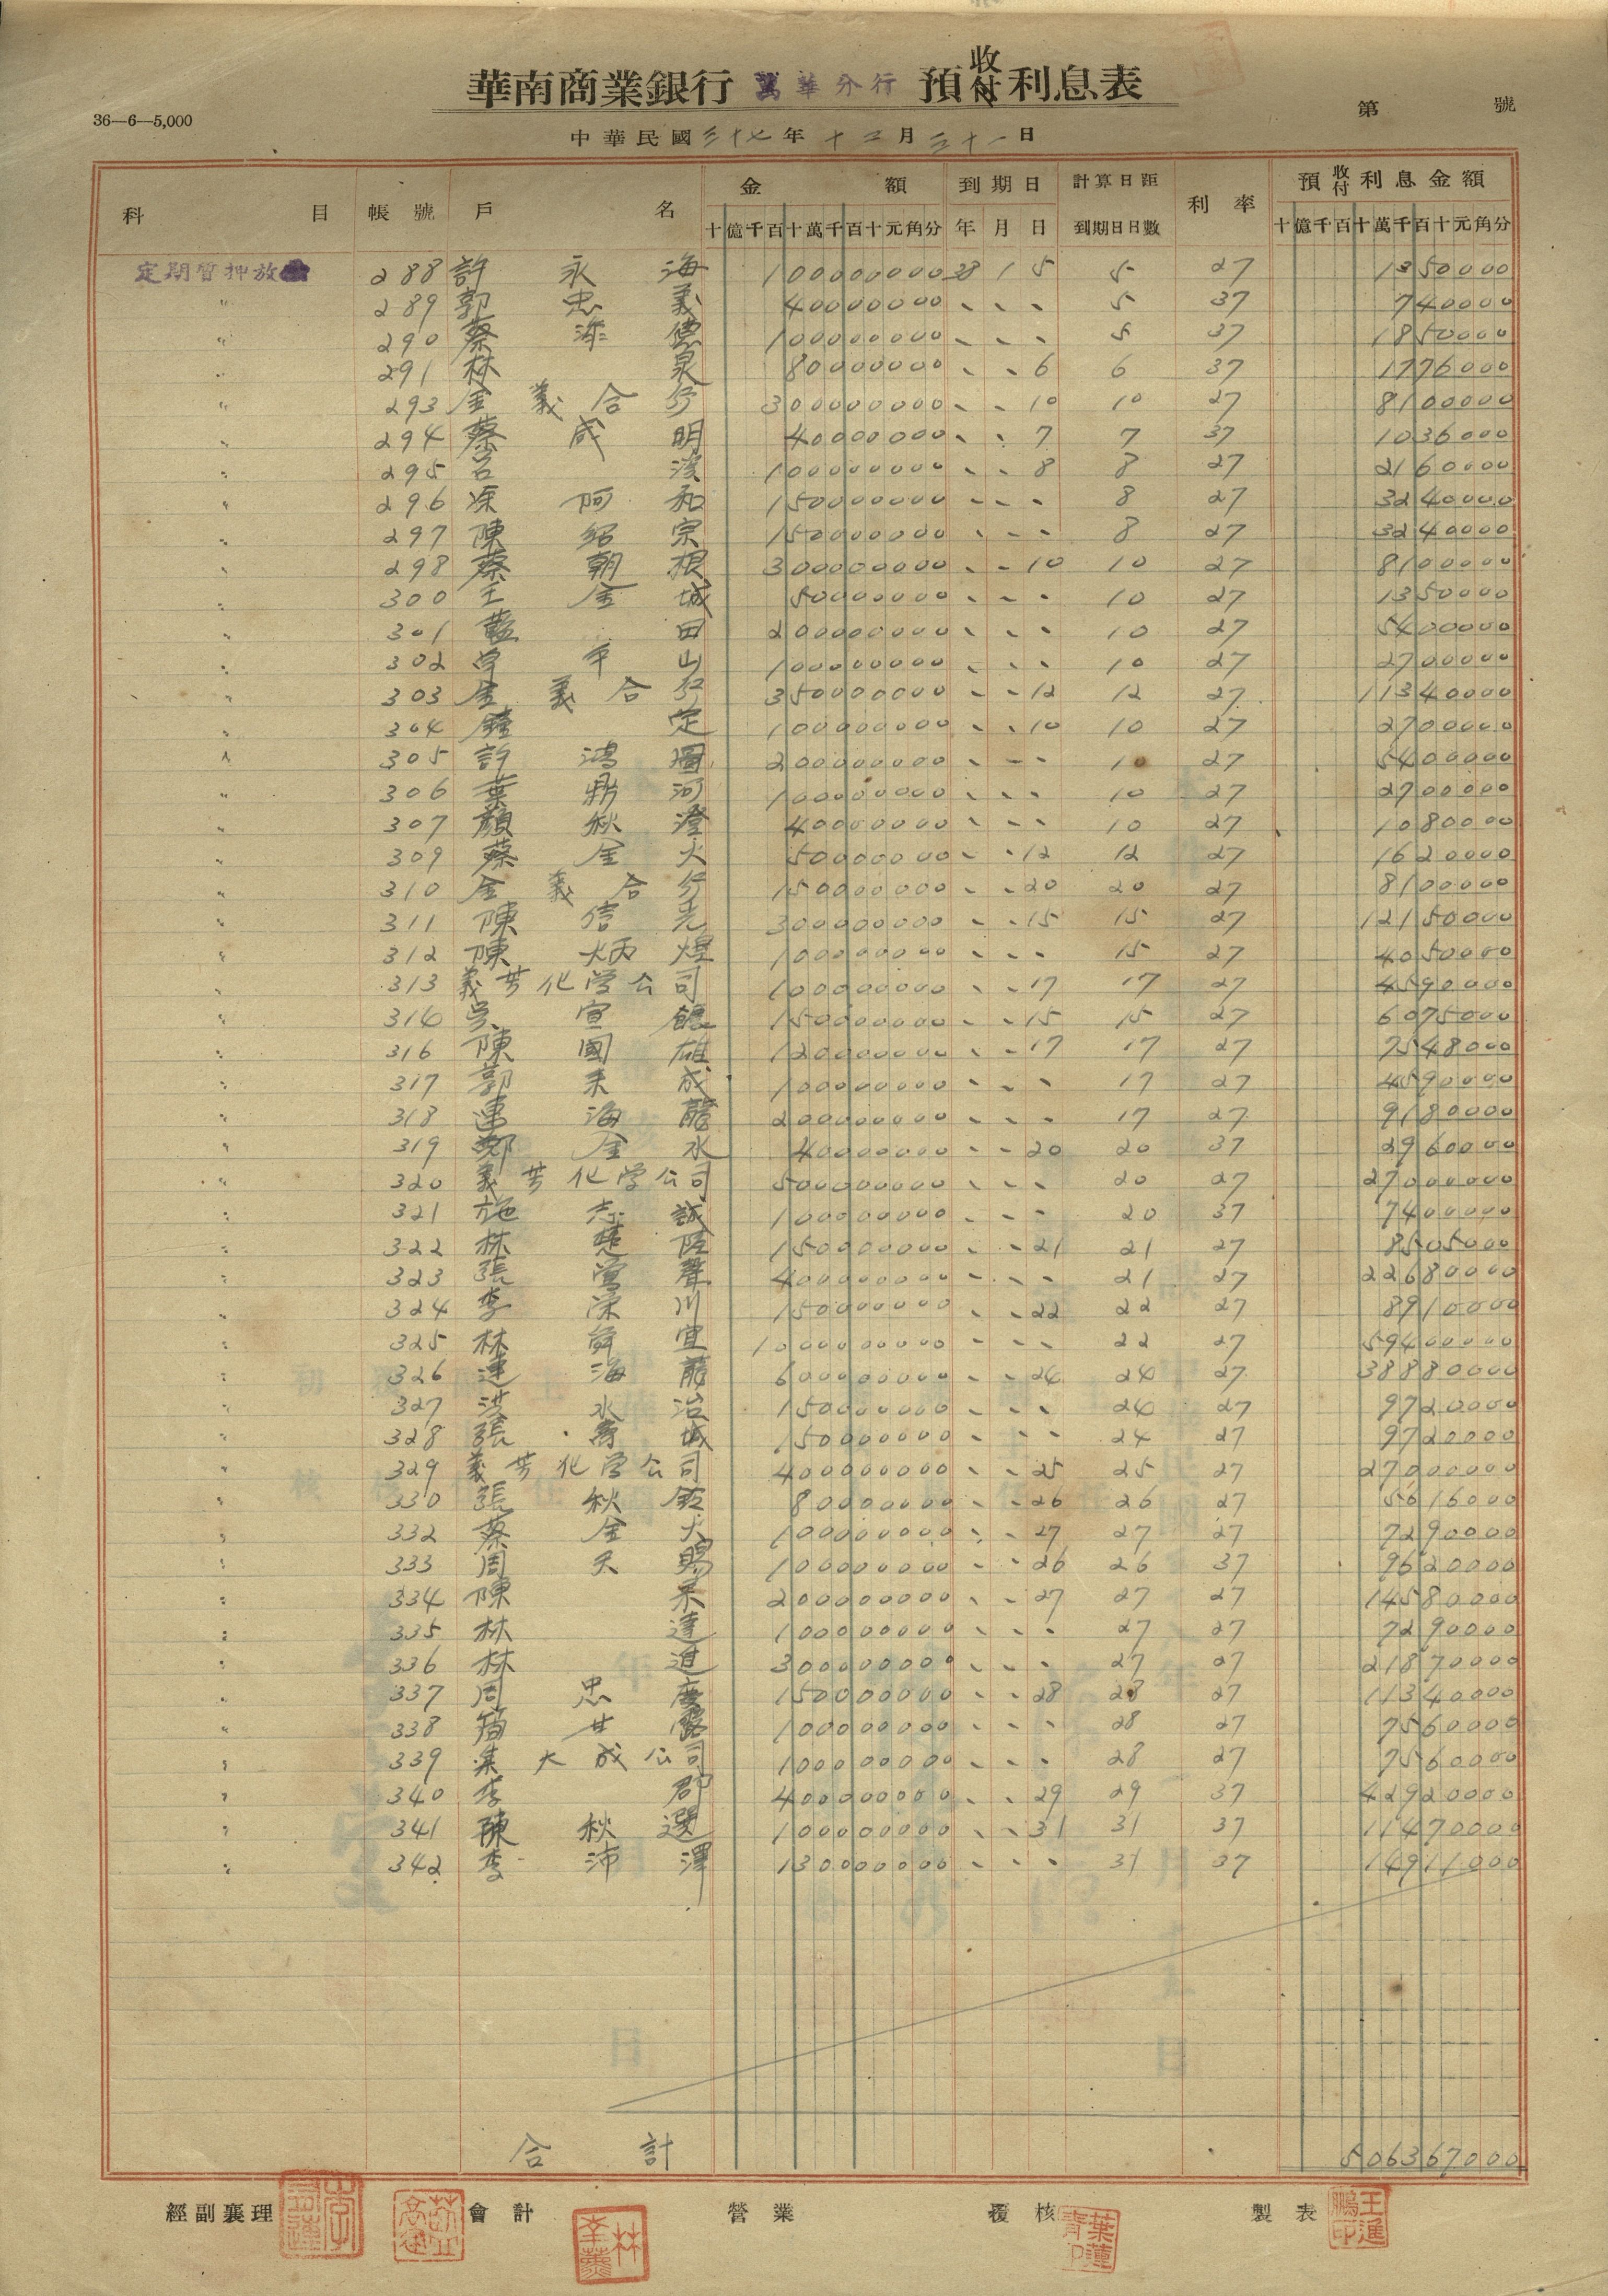 華南商業銀行 萬華分行 預收付利息表
36—6—5,000
第 號
中華民國三十七年十二月三十一日
科目 帳號 戶名 金額 到期日 計算日距到期日日數 利率 預收付利息金額
十億千百十萬千百十元角分 年 月 日 十億千百十萬千百十元角分
定期質押放 288 許永海 100000000 38 1 5 5 27 1350000
〃 289 郭忠義 40000000 、 、 、 5 37 740000
〃 290 蔡 德 100000000 、 、 、 5 37 1850000
〃 291 林泉 80000000 、 、 6 6 37 1776000
〃 293 金義合行 300000000 、 、 10 10 27 8100000
〃 294 蔡成明 40000000 、 、 7 7 37 1036000
〃 295 呂漢 100000000 、 、 8 8 27 2160000
〃 296 阿和 150000000 、 、 、 8 27 3240000
〃 297 陳紹宗 150000000 、 、 、 8 27 3240000
〃 298 蔡朝根 300000000 、 、 10 10 27 8100000
〃 300 王金城 50000000 、 、 、 10 27 1350000
〃 301 藍田 200000000 、 、 、 10 27 5400000
〃 302 山 100000000 、 、 、 10 27 2700000
〃 303 金義合行 350000000 、 、 12 12 27 11340000
〃 304 鍾定 100000000 、 、 10 10 27 2700000
〃 305 許鴻圖 200000000 、 、 、 10 27 5400000
〃 306 葉鼎河 100000000 、 、 、 10 27 2700000
〃 307 顏秋澄 40000000 、 、 、 10 27 1080000
〃 309 蔡金火 50000000 、 、 12 12 27 1620000
〃 310 金義合行 150000000 、 、 20 20 27 8100000
〃 311 陳信光 300000000 、 、 15 15 27 12150000
〃 312 陳炳煌 100000000 、 、 、 15 27 4050000
〃 313 義芳化学公司 100000000 、 、 17 17 27 4590000
〃 314 吳宣 150000000 、 、 15 15 27 6075000
〃 316 陳國雄 120000000 、 、 17 17 27 7548000
〃 317 郭來成 100000000 、 、 、 17 27 4590000
〃 318 連海龍 200000000 、 、 、 17 27 9180000
〃 319 鄭金水 40000000 、 、 20 20 37 2960000
〃 320 義芳化学公司 500000000 、 、 、 20 27 27000000
〃 321 施志誠 100000000 、 、 、 20 37 7400000
〃 322 林楚 150000000 、 、 21 21 27 8505000
〃 323 張鶯聲 400000000 、 、 、 21 27 22680000
〃 324 李深川 150000000 、 、 22 22 27 8910000
〃 325 林舜宜 1000000000 、 、 、 22 27 59400000
〃 326 連海龍 600000000 、 、 24 24 27 38880000
〃 327 洪水治 150000000 、 、 、 24 27 9720000
〃 328 張城 150000000 、 、 、 24 27 9720000
〃 329 義芳化学公司 400000000 、 、 25 25 27 27000000
〃 330 張秋 80000000 、 、 26 26 27 5616000
〃 332 蔡金火 100000000 、 、 27 27 27 7290000
〃 333 周天賜 100000000 、 、 26 26 37 9620000
〃 334 陳 200000000 、 、 27 27 27 14580000
〃 335 林達 100000000 、 、 、 27 27 7290000
〃 336 林進 300000000 、 、 、 27 27 21870000
〃 337 周忠慶 150000000 、 、 28 28 27 11340000
〃 338 甘露 100000000 、 、 、 28 27 7560000
〃 339 集大成公司 100000000 、 、 、 28 27 7560000
〃 340 李郡 400000000 、 、 29 29 37 42920000
〃 341 陳秋選 100000000 、 、 31 31 37 11470000
〃 342 李沛澤 130000000 、 、 、 31 37 14911000
合計 506367000
經副襄理 會計 營業 覆核 製表
葉蓮青印 王進鵬印